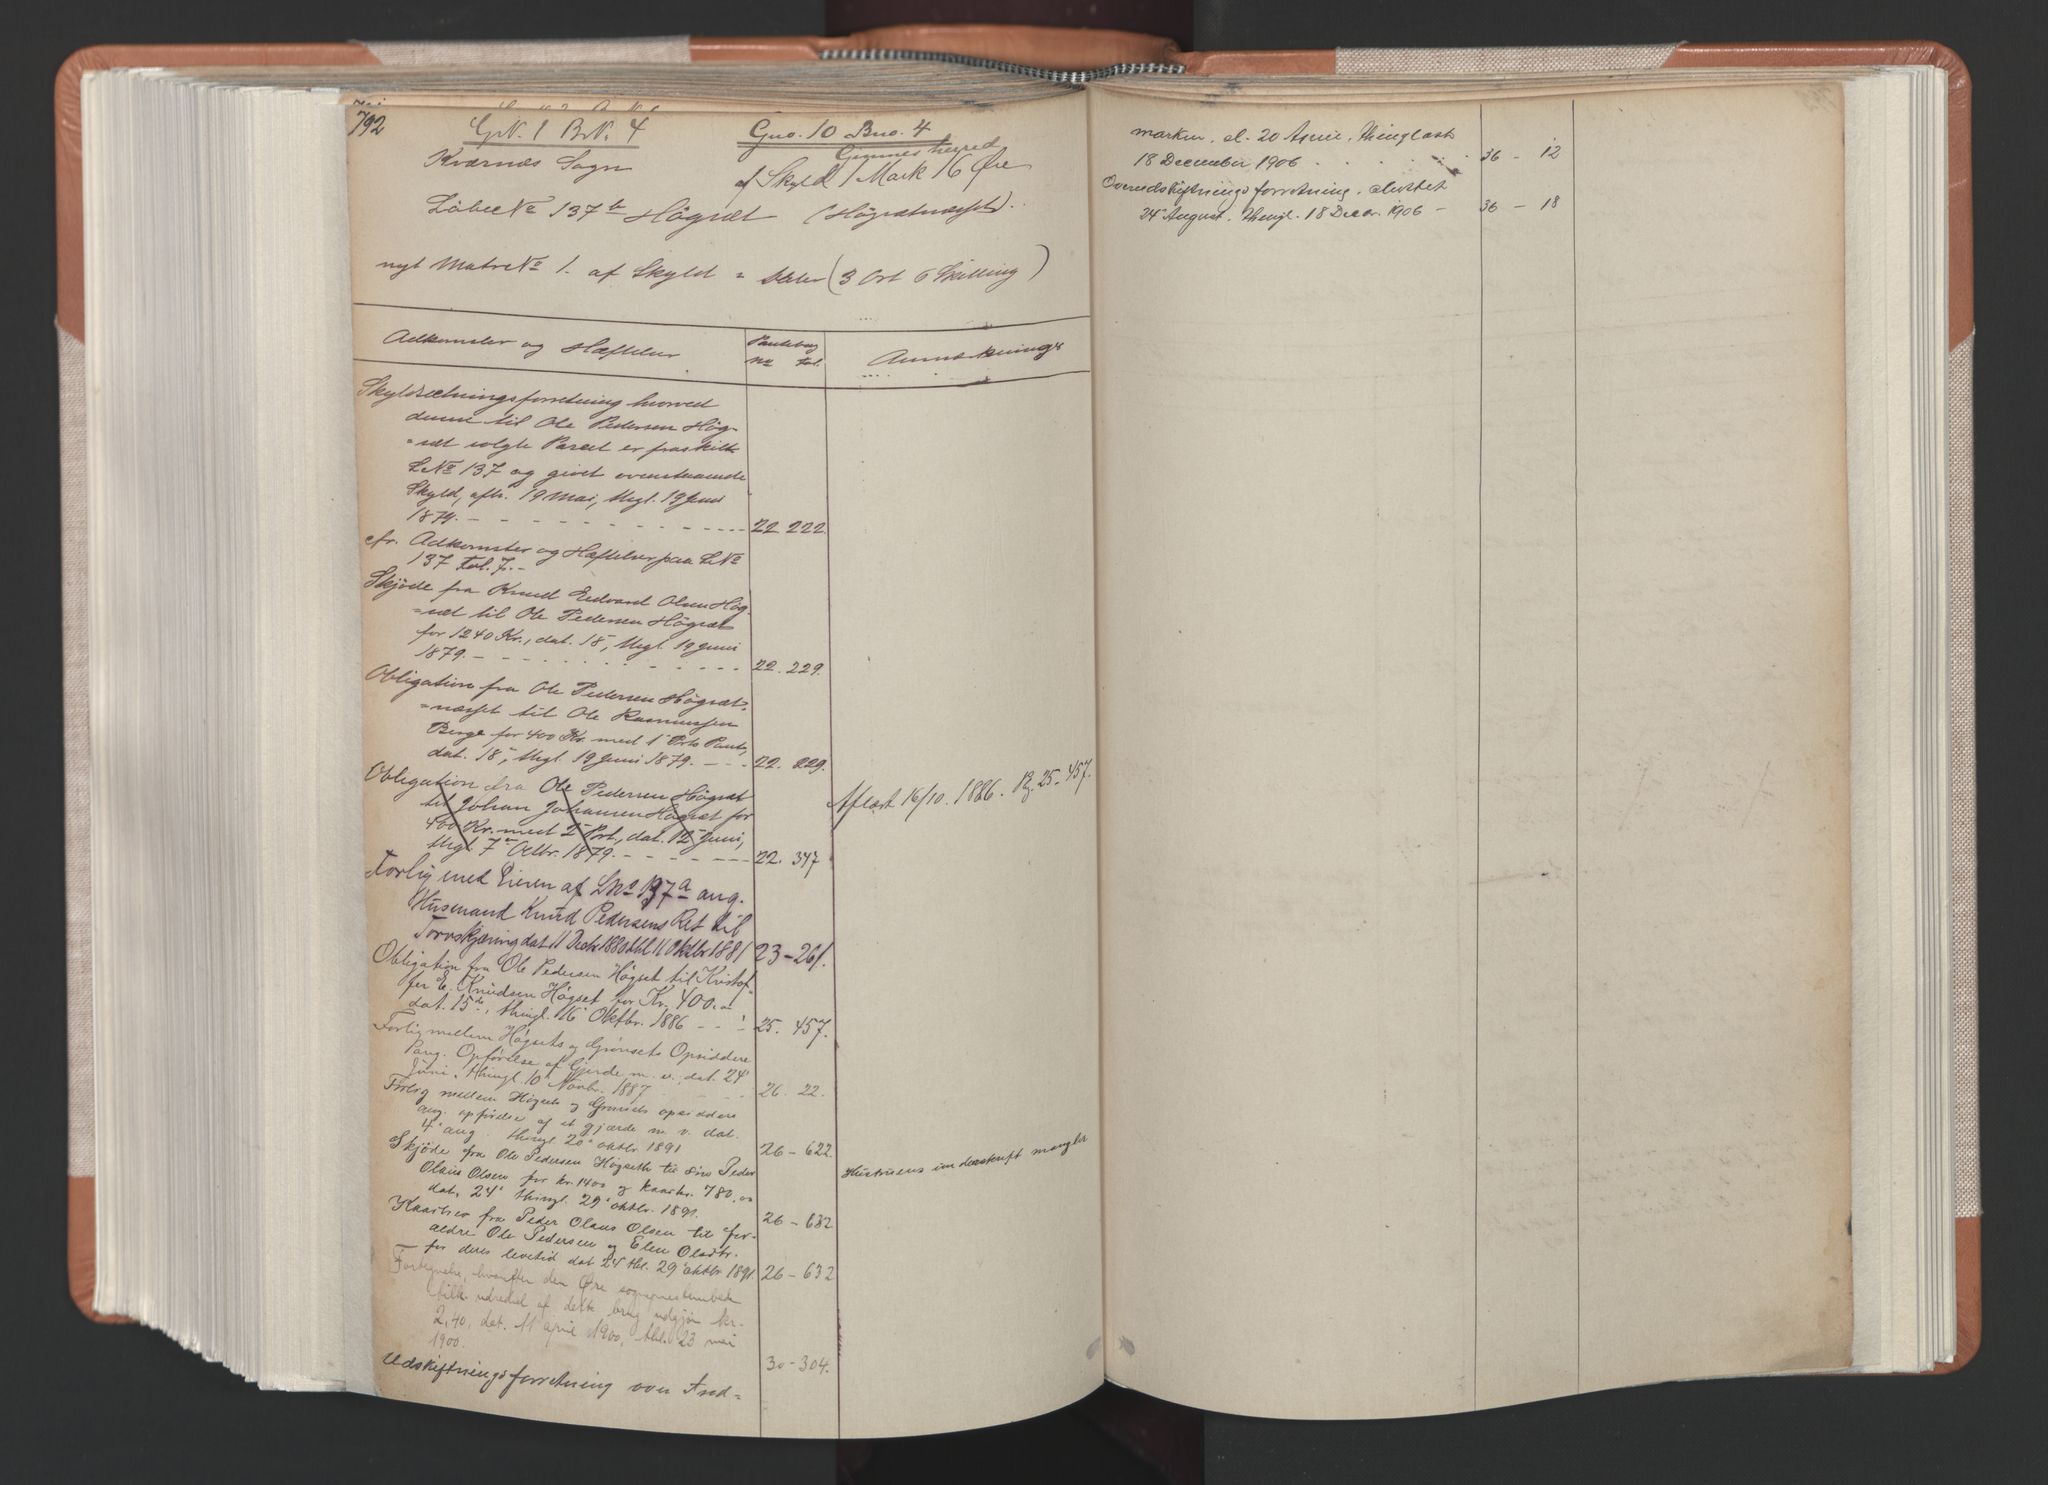 792
G.N. 1 B.N. 4
Gno. 10 Bno. 4
Kværnæs Sogn
Gimnes herred
af Skyld 1 Mark 16 Øre
Løbe No 137 b Högsæt (Högsætnæsset).
nyt Matr No 1. af Skyld = Daler (3 Ort 6 Skilling)
Adkomster og Hæftelser
Pantebog
No Fol.
Anmærkninger
Skyldsætningsforretning hvorved
denne til Ole Pedersen Hög-
=sæt solgte Parcel er fraskilt
L No 137 og givet ovenstaaende
Skyld, afh. 19 Mai, thgl. 19 Juni
1879. - - - 22. 222.
cfr. Adkomster og Hæftelser paa L No
137 Fol. 7. -
Skjöde fra Knud Edvard Olsen Hög-
=sæt til Ole Pedersen Högsæt
for 1240 Kr., dat. 18, thgl. 19 Juni
1879. - - - 22. 229.
Obligation fra Ole Pedersen Högsæt-
=næsset til Ole Rasmussen
Berge for 400 Kr. med 1 Prts Pant,
dat. 18, thgl. 19 Juni 1879. - - - 22. 229.
Obligation fra Ole Pedersen Högsæt
til Johan Johansen Högsæt for
400 Kr. med 2 Prt., dat. 12 Juni,
thgl. 7 Octbr. 1879. - - - 22. 347
Aflæst 16/10. 1886. B. 25. 457.
Forlig med Eieren af L No 137 a ang.
Husmand Knud Pedersens Ret til
Torvskjæring dat 11 Decbr 1880 thl 11 Oktbr 1881 23 - 261.
Obligation fra Ole Pedersen Högset til Kristof-
fer E. Knudsen Högset for Kr. 400.
dat. 15de, thingl. 16 Oktbr. 1886 - - 25. 457.
Forlig mellem Högsets og Grönsets Opsiddere
ang. Opförelse af Gjerde m. v., dat. 24
Juni, thingl. 10 Novbr. 1887 - - 26. 22.
Forlig mellem Högsets og Grönsets opsiddere
ang. opförelse af et gjærde m. v. dat.
4 aug. thingl 20 oktbr 1891 26 - 622.
Skjöde fra Ole Pedersen Högseth til sön Peder
Olaus Olsen for kr. 1400 og kaarkr. 780.00
dat. 24 thingl. 29 oktbr. 1891. 26 - 632
Hustruens underskrift mangler
Kaarbrev fra Peder Olaus Olsen til for-
ældre Ole Pedersen og Elen Olsdtr.
for deres levetid dat 24 thl. 29 oktbr 1891. 26 - 632
Fortegnelse, hvorefter den Øre sognepræstembede
tilk. udredsel af dette brug udgjør kr.
2,40, dat. 11 april 1900, thl. 23 mai
1900. 30 - 304.
Udskiftningsforretning over Ind=
marken, d. 20 April, thinglæst
18 December 1906 . . . . 36 - 12
Overudskiftningsforretning, sluttet
24 August, thingl. 18 Decbr. 1906 - 36 - 18